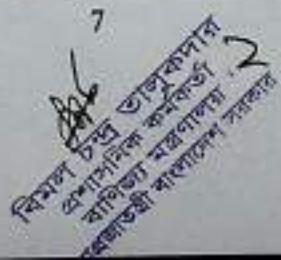 বিমল চন্দ্র তালুকদার
প্রশাসনিক কর্মকর্তা
বাণিজ্য মন্ত্রণালয়
বাংলাদেশ সরকার